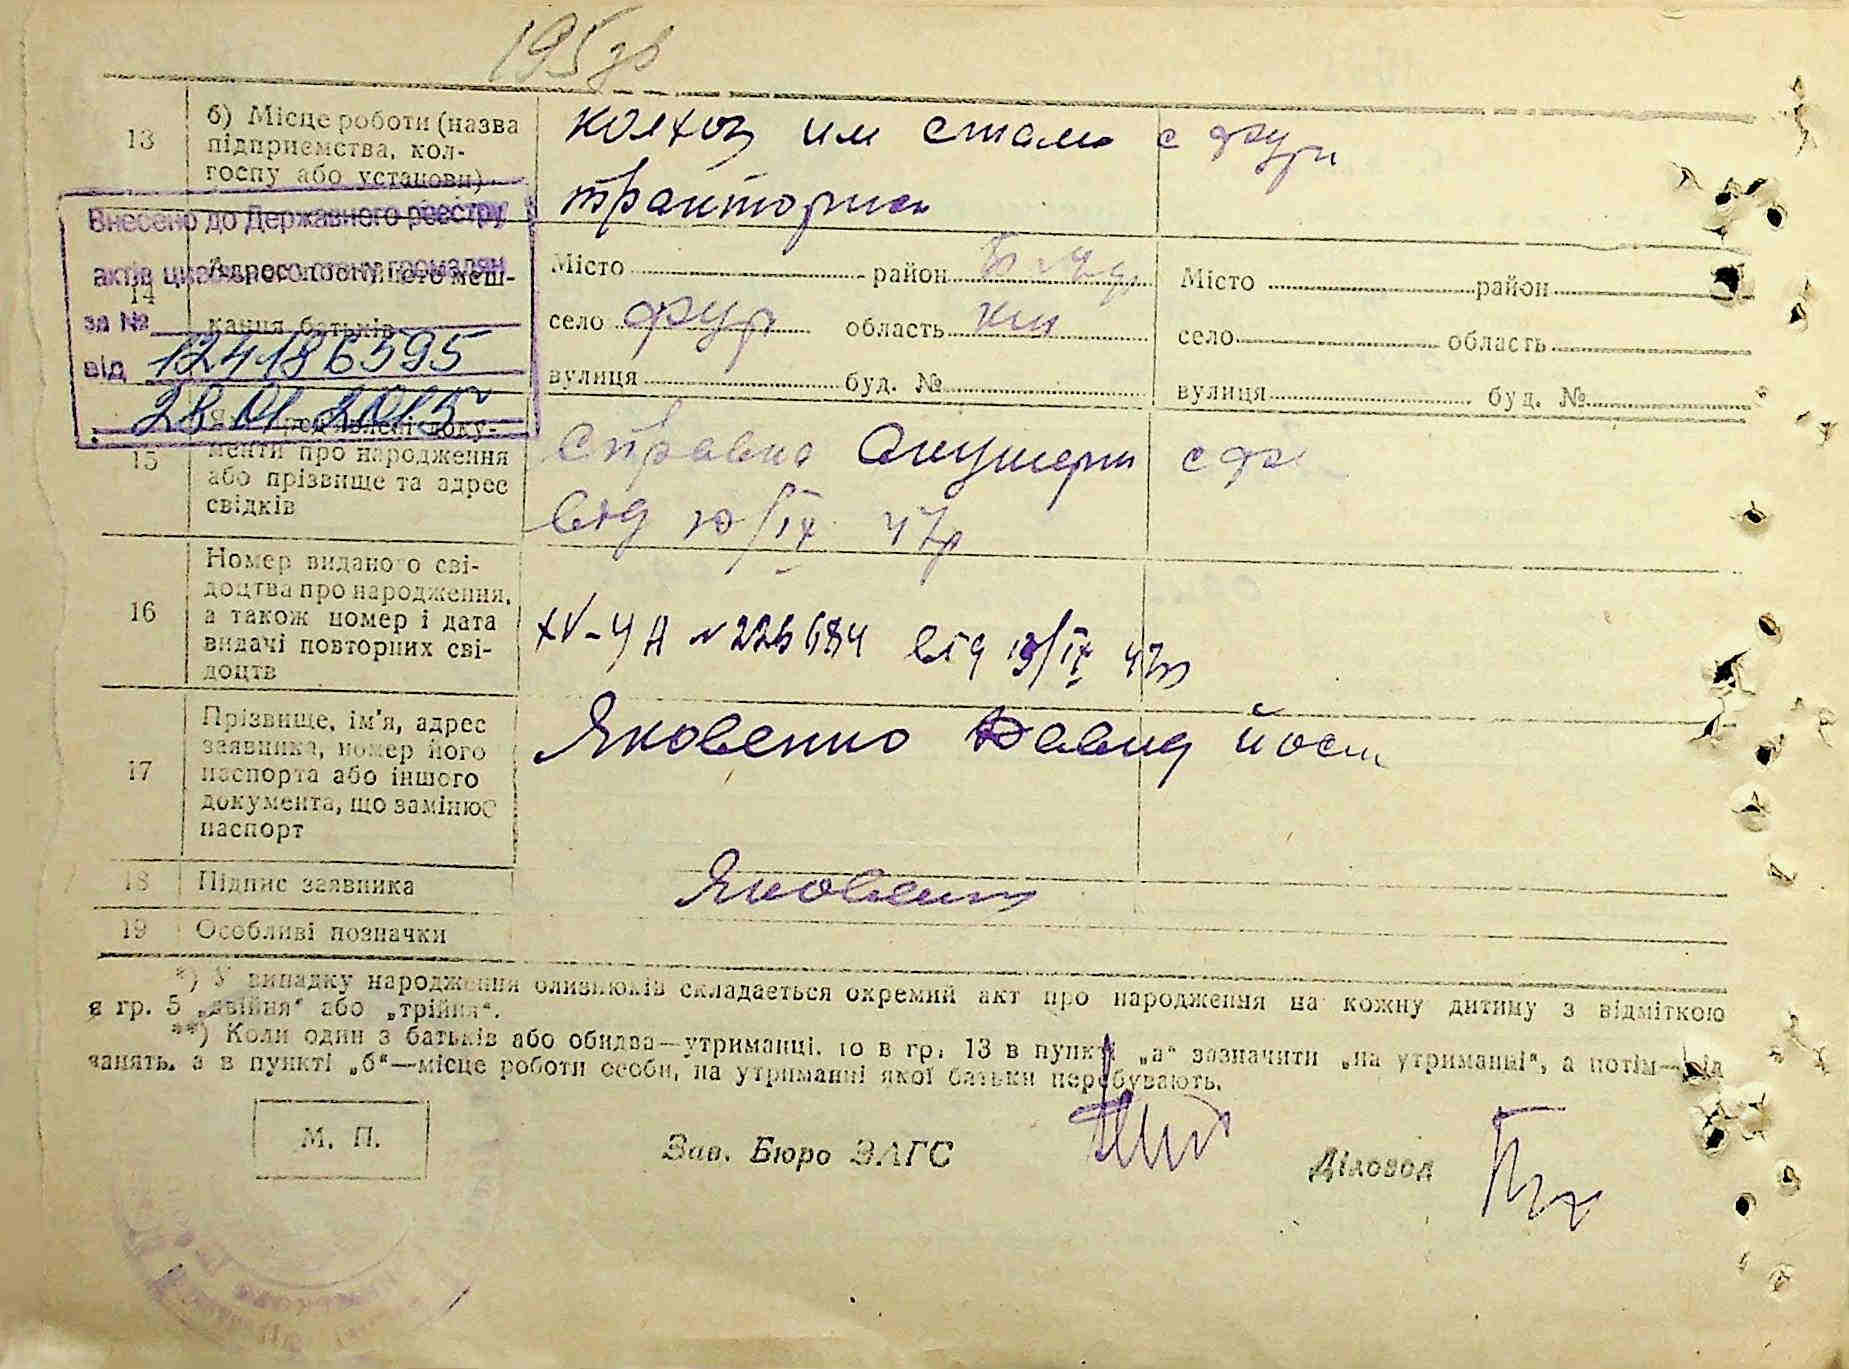 195зр
13
б) Місце роботи (назва
підприємства, кол-
госпу або установи)
колхоз им стали с фури
тракторист
Внесено до Державного реєстру
актів цивільного стану громадян
за №
124186595
від
28.01.2015
14
Адреса постійного меш-
кання батьків
Місто район
село фур область кии
вулиця буд. №
Місто район
село область
вулиця буд. №
15
Які пред'явлені доку-
менти про народження
або прізвище та адрес
свідків
Справка Акушерки с фу
від 10/IX 47р
16
Номер виданого сві-
доцтва про народження,
а також номер і дата
видачі повторних сві-
доцтв
XV-ЧА № 225684 від 19/IX 47р
17
Прізвище, ім'я, адрес
заявника, номер його
паспорта або іншого
документа, що замінює
паспорт
Яковенко Давид Йосип
18
Підпис заявника
Яковенко
19
Особливі позначки
*) У випадку народження близнюків складається окремий акт про народження на кожну дитину з відміткою
в гр. 5 „двійня“ або „трійня“.
**) Коли один з батьків або обидва—утриманці, то в гр. 13 в пункті „а“ зазначити „на утриманні“, а потім—від
занять, а в пункті „б“—місце роботи особи, на утриманні якої батьки перебувають.
М. П.
Зав. Бюро ЗАГС
Діловод